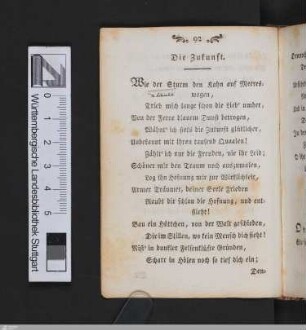 92
Die Zukunft.
Wie der Sturm den Kahn auf Meeres-
wogen,
Trieb mich lange schon die Lieb' umher,
Von der Ferne blauem Dunst betrogen,
Wähnt' ich stets die Zukunft glücklicher,
Unbekannt mit ihren tausend Quaalen!
Zählt' ich nur die Freuden, nie ihr Leid;
Schöner mir den Traum noch auszumalen,
Log die Hofnung mir zur Wirklichkeit,
Armer Träumer, deiner Seele Frieden
Raubt die schlau die Hofnung, und ent-
flieht!
Bau ein Hüttchen, von der Welt geschieden,
Die im Stillen, wo kein Mensch dich sieht!
Nist' in dunkler Felsenklüfte Gründen,
Scharr in Hölen noch so tief dich ein:
Den-
Württembergische Landesbibliothek Stuttgart